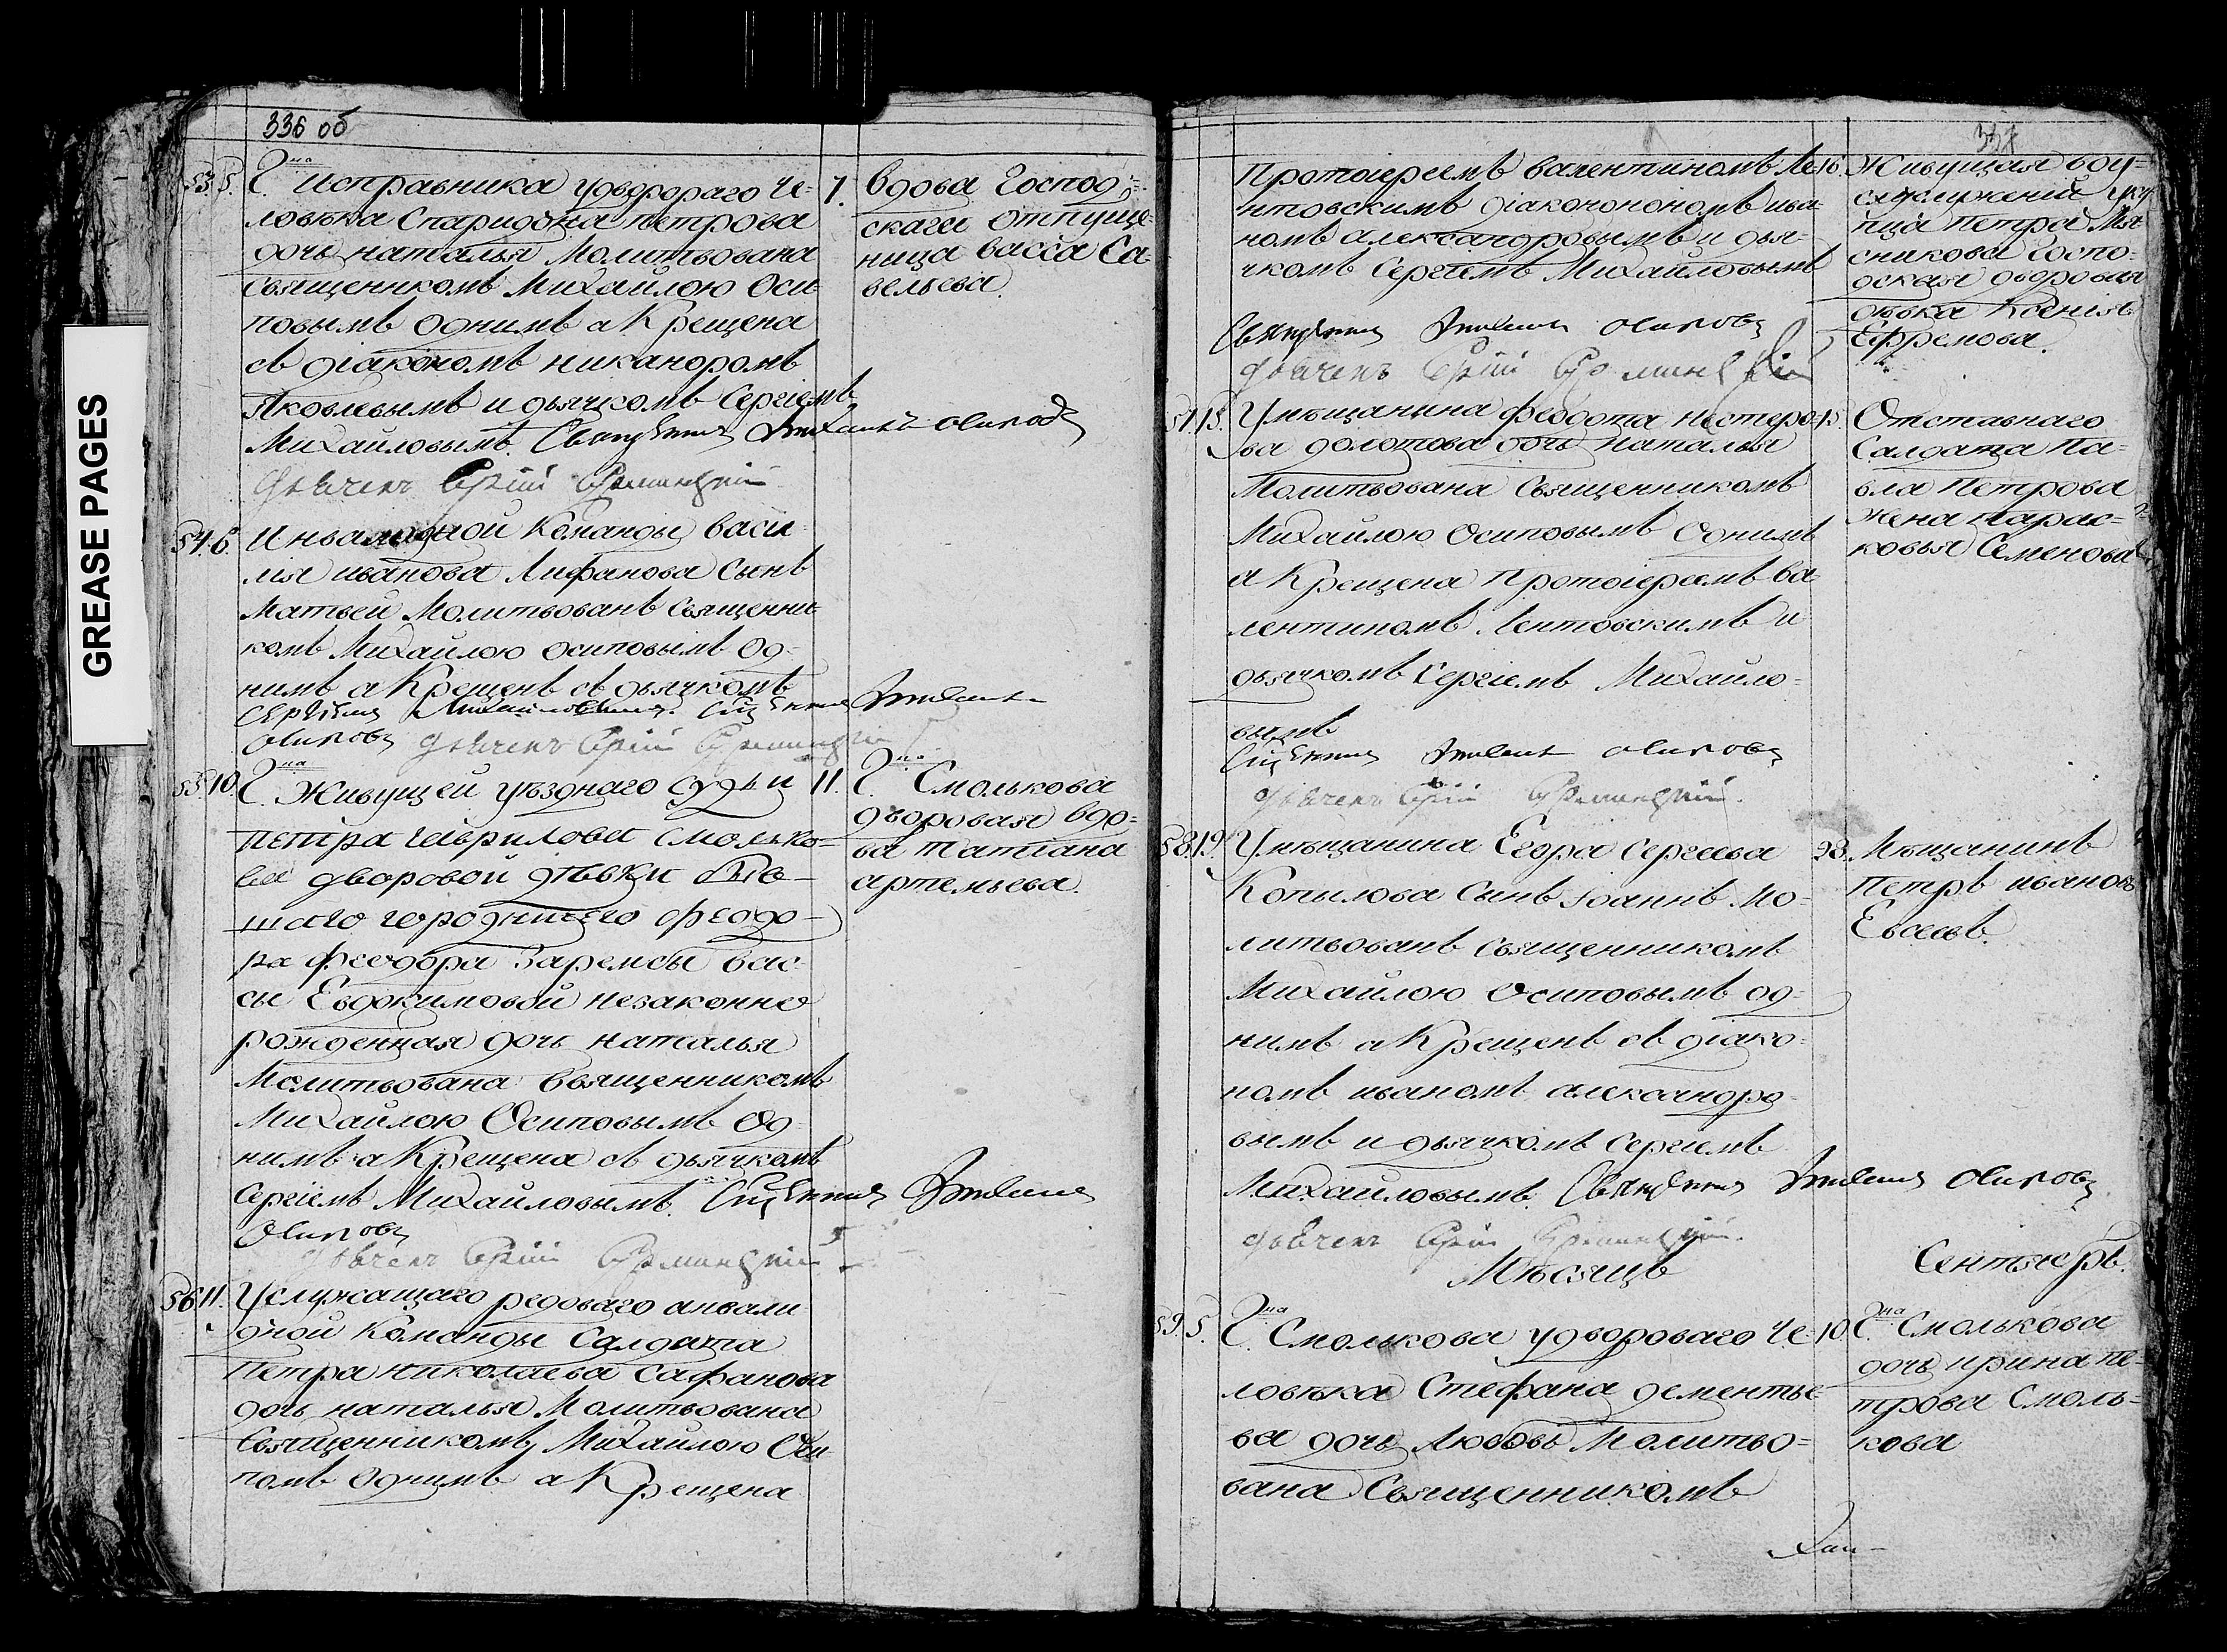 GREASE PAGES
336 об
53. 5. Г.на исправника удворораго че=
ловѣка Спаридона петрова
дочь наталья Молитвована
Священикомъ Михайлою Оси
повымъ Однимъ а Крещена
съ діакономъ никаноромъ
Яковлевымъ и дьячкомъ Сергіемъ
Михайловымъ. Священникъ Михаилъ Осиповъ
дьячекъ Сергій
7. Вдова Господ=
скаги отпуще=
ница васса Са
вельева.
54. 6. Инвалидной Команды васи
лья иванова Лифанова Сынъ
Матвей Молитвованъ Священни
комъ Михайлою Осиповымъ Од=
нимъ а Крещенъ съ дьячкомъ
Сергіемъ Михайловымъ. Сщенникъ Михаилъ
Осиповъ дьячекъ Сергій
55. 10. Г.на Живущей уѣзднаго судьи
петра гаврилова смолько=
ва дворовой дѣвки
шаго городничего феодо=
ра феодора Зарембы Вас
сы Евдокимовой незаконно
рожденная дочь наталья
Молитвована Священникомъ
Михайлою Осиповымъ Од
нимъ а Крещена съ дьячкомъ
Сергіемъ Михайловымъ. Сщенникъ Михаилъ
Осиповъ
дьячекъ Сергій
11. Г.на Смолькова
дворовая вдо=
ва татіана
артемьева.
56. 11. Услужащаго редоваго анвали
дной Команды Салдата
Петра николаева Сафанова
дочь наталья Молитвована
Священникомъ Михайлою Оси
помъ Однимъ а Крещена
337
Протоіереемъ валентиномъ Ле
нтовскимъ діаконономъ ива
номъ александровымъ и дья=
чкомъ Сергіемъ Михайловымъ
Священникъ Михаилъ Осиповъ
дьячекъ Сергій
16. Живущая воу=
служеніи уку
пца петра Мя
сникова Госпо=
дская дворовая
дѣвка Ксенія
Ефремова.
57. 13. Умѣщанина феодота нестеро
ва долотова дочь наталья
Молитвована Священникомъ
Михайлою Осиповымъ Однимъ
а Крещена Протоіереемъ ва
лентиномъ Лентовскимъ и
дьячкомъ Сергіемъ Михайло=
вымъ
Сщенникъ Михаилъ Осиповъ
дьячекъ Сергій
15. Отставнаго
Салдата Па=
вла Петрова
жена Парас=
ковья Семенова
58. 19. Умѣщанина Егора Сергеева
Копылова Сынъ Іоаннъ Мо=
литвованъ Священникомъ
Михайлою Осиповымъ од=
нимъ а Крещенъ съ діако=
номъ иваномъ александро
вымъ и дьячкомъ Сергіемъ
Михайловымъ. Священникъ Михаилъ Осиповъ
дьячекъ Сергій
23. Мѣщанинъ
Петръ ивановъ
Евсеевъ.
Мѣсяцъ Сентябрь.
59. 5. Г.на Смолькова удвороваго Че=
ловѣка Стефана дементье
ва дочь Любовь Молитво=
вана Священникомъ
10. Г.на Смолькова
дочь ирина пе=
трова Смоль=
кова